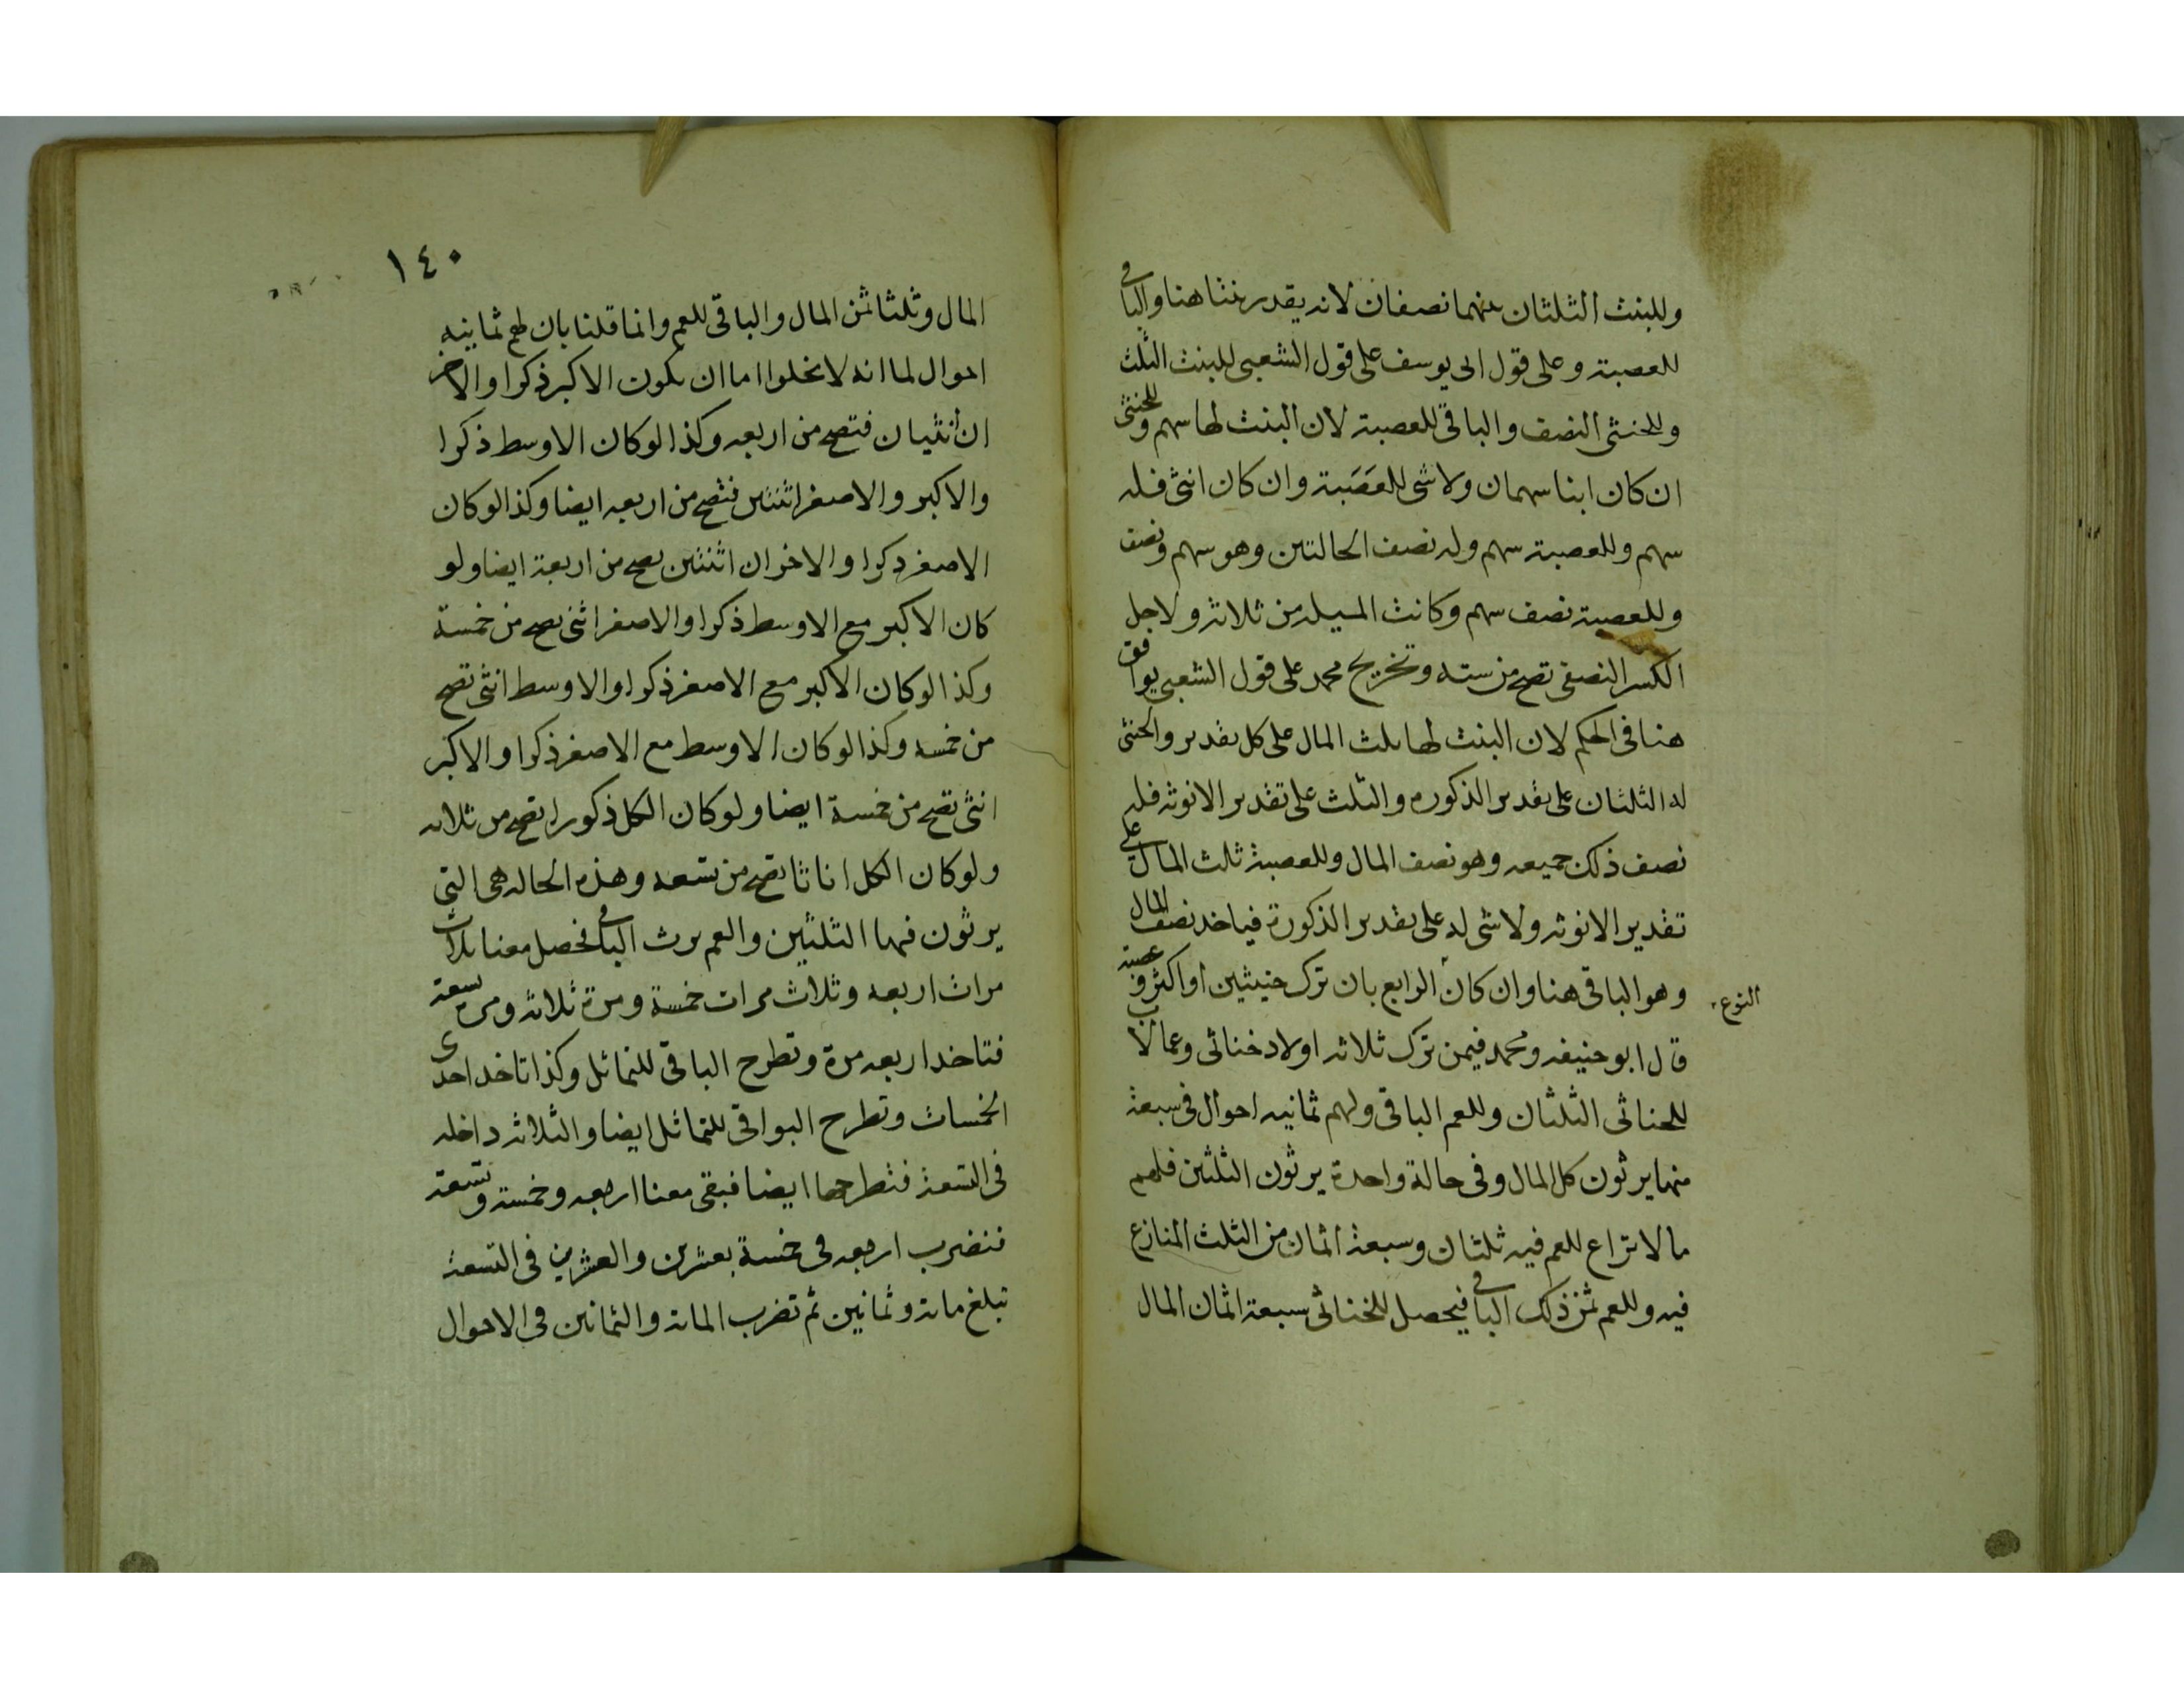 وللبنت الثلثان بينهما نصفان لانه يقدر بنتا هنا والباقى
للعصبة وعلى قول ابى يوسف على قول الشعبى للبنت الثلث
وللخنثى النصف والباقى للعصبة لان البنت لها سهم وللخنثى
ان كان ابنا سهمان ولا شى للعَصَبة وان كان انثى فله
سهم وللعصبة سهم وله نصف الحالتين وهو سهم ونصف
وللعصبة نصف سهم وكانت المسيله من ثلاثه ولاجل
الكسر النصفى تصح من سته وتخريج محمد على قول الشعبى يوافق
هنا فى الحكم لان البنت لها ثلث المال على كل تقدير والخنثى
له الثلثان على تقدير الذكوره والثلث على تقدير الانوثه فله
نصف ذلك جميعه وهو نصف المال وللعصبة ثلث المال على
تقدير الانوثه ولا شى له على تقدير الذكورة فياخد نصف المال
وهو الباقى هنا وان كان الرابع بان ترك خنيثين او اكثر وعصبة
النوع
قال ابو حنيفه ومحمد فيمن ترك ثلاثه اولاد خناثى وعما لاب
للخناثى الثلثان وللعم الباقى ولهم ثمانيه احوال فى سبعة
منها يرثون كل المال وفى حالة واحدة يرثون الثلثين فلهم
ما لا نزاع للعم فيه ثلثان وسبعة اثمان من الثلث المنازع
فيه وللعم ثمن ذلك الباقى فيحصل للخناثى سبعة اثمان المال
١٤٠
المال وثلثا ثمن المال والباقى للعم وانما قلنا بان لهم ثمانيه
احوال لما انه لا يخلوا اما ان يكون الاكبر ذكرا والاخر
ان أنثيان فتصح من اربعه وكذا لو كان الاوسط ذكرا
والاكبر والاصغر اثنتين فتصح من اربعه ايضا وكذا لو كان
الاصغر ذكرا والاخران اثنتين تصح من اربعة ايضا ولو
كان الاكبر مع الاوسط ذكرا والاصغر انثى تصح من خمسة
وكذا لو كان الاكبر مع الاصغر ذكرا والاوسط انثى تصح
من خمسه وكذا لو كان الاوسط مع الاصغر ذكرا والاكبر
انثى تصح من خمسة ايضا ولو كان الكل ذكورا تصح من ثلاثه
ولو كان الكل اناثا تصح من تسعه وهذه الحاله هى التى
يرثون فيها الثلثين والعم يرث الباقى فحصل معنا ثلاث
مرات اربعه وثلاث مرات خمسة ومرة ثلاثه ومره تسعة
فتاخد اربعه مرة وتطرح الباقى للتماثل وكذا تاخد احدى
الخمسات وتطرح البواقى للتماثل ايضا والثلاثه داخله
فى التسعة فتطرحها ايضا فبقى معنا اربعه وخمسة وتسعة
فنضرب اربعه فى خمسة بعشرين والعشرين فى التسعة
تبلغ ماية وثمانين ثم تضرب الماية والثمانين فى الاحوال